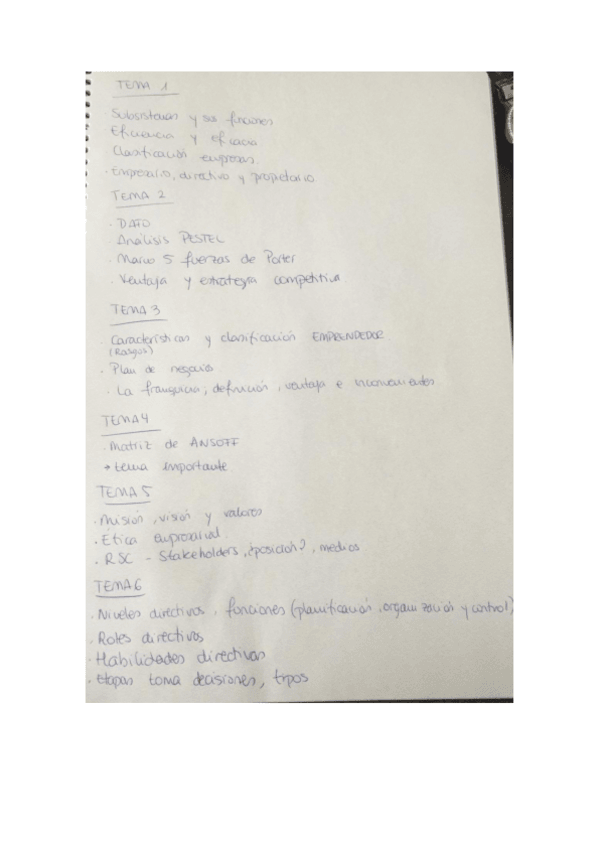 TEMA 1
Subsistemas y sus funciones
Eficiencia y eficacia
Clasificación empresas.
· Empresario, directivo y propietario.
TEMA 2
· DAFO
· Análisis PESTEL
· Marco 5 fuerzas de Porter
· Ventaja y estrategia competitiva
TEMA 3
· Características y clasificación EMPRENDEDOR
(Rasgos)
· Plan de negocio
· La franquicia; definición, ventaja e inconvenientes
TEMA 4
· Matriz de ANSOFF
→ tema importante
TEMA 5
· Misión, visión y valores
· Ética empresarial
· RSC - Stakeholders, ¿posición?, medios
TEMA 6
· Niveles directivos, funciones (planificación, organización y control)
· Roles directivos
· Habilidades directivas
· Etapas toma decisiones, tipos